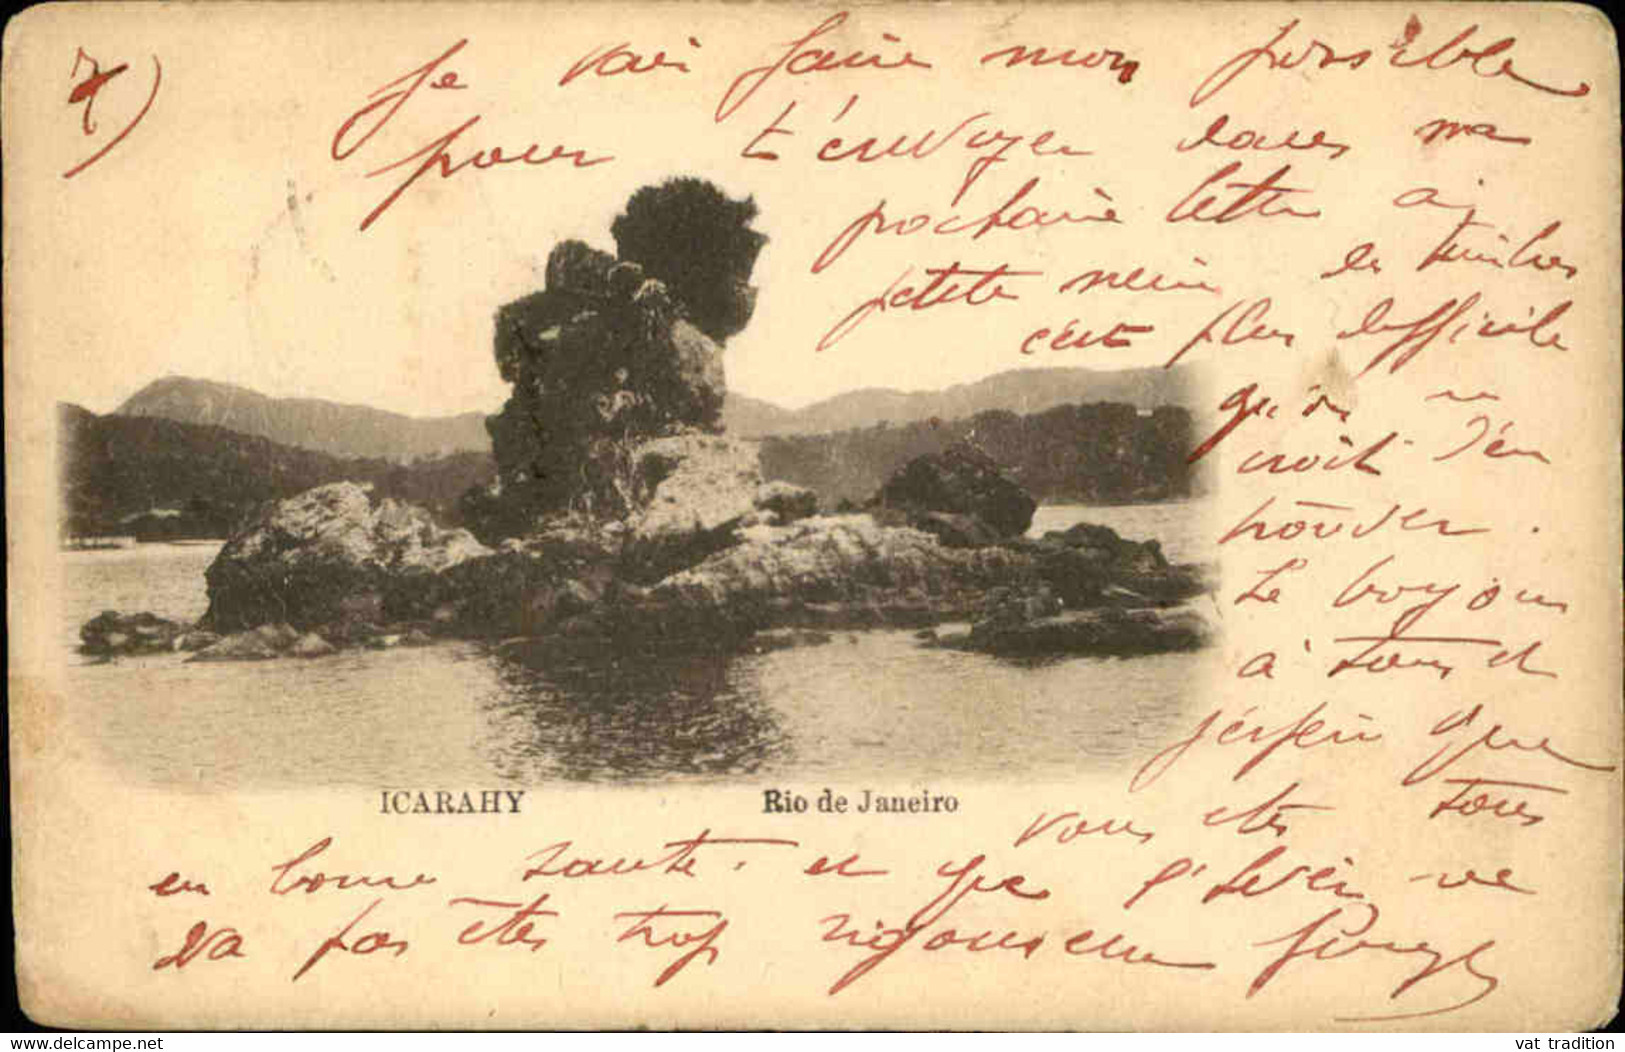 7)
Je vais faire mon possible
pour t'envoyer dans ma
prochaine lettre a
petite des timbres
c'est plus difficile
qu'on ne
croit d'en
trouver.
Le bonjour
à tous et
j'espère que
vous etes tous
en bonne sante. et que l'hiver ne
va pas être trop rigoureux
ICARAHY Rio de Janeiro
vat tradition
www.delcampe.net